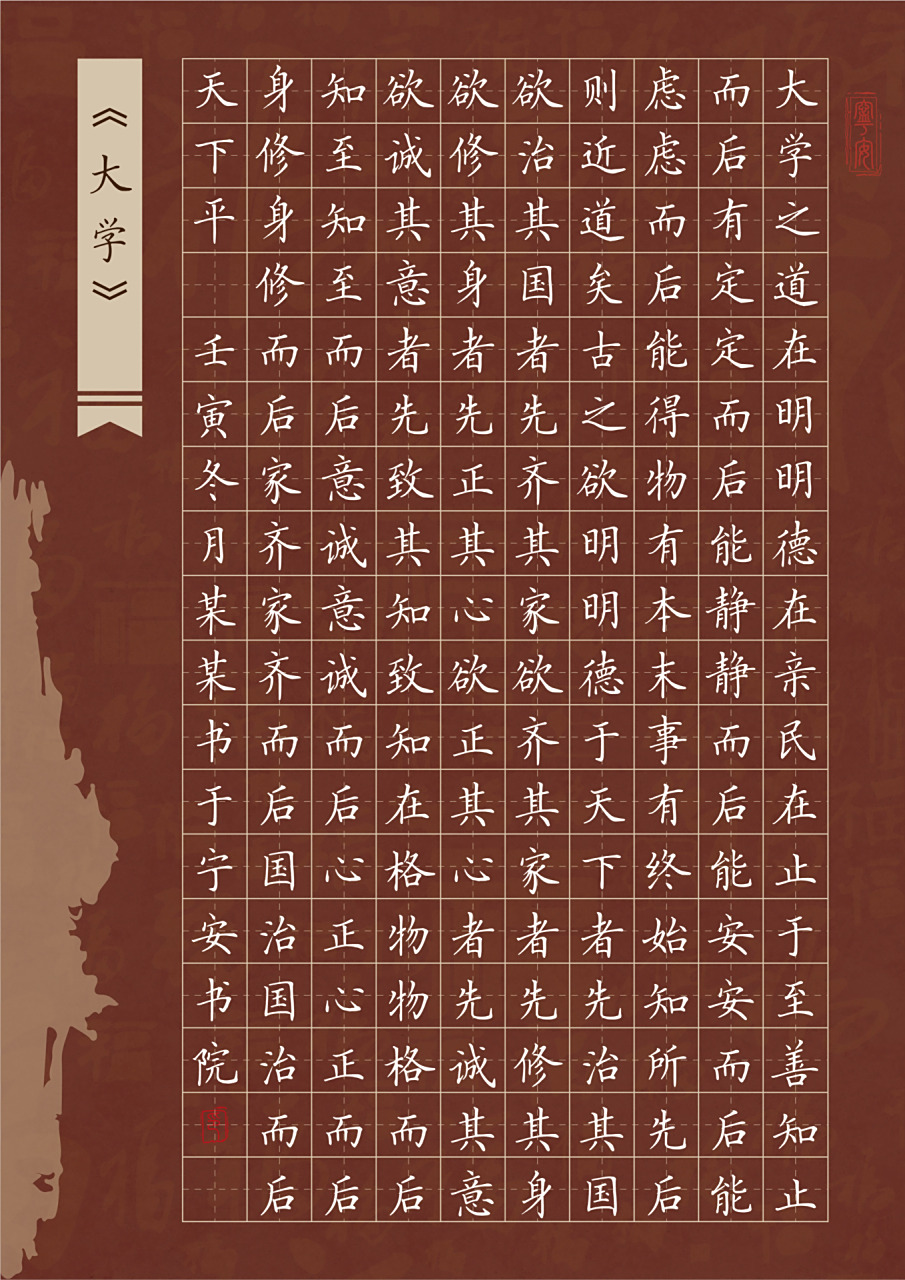 大学之道在明明德在亲民在止于至善知止
而后有定定而后能静静而后能安安而后能
虑虑而后能得物有本末事有终始知所先后
则近道矣古之欲明明德于天下者先治其国
欲治其国者先齐其家欲齐其家者先修其身
欲修其身者先正其心欲正其心者先诚其意
欲诚其意者先致其知致知在格物物格而后
知至知至而后意诚意诚而后心正心正而后
身修身修而后家齐家齐而后国治国治而后
天下平 壬寅冬月某某书于宁安书院
《大学》